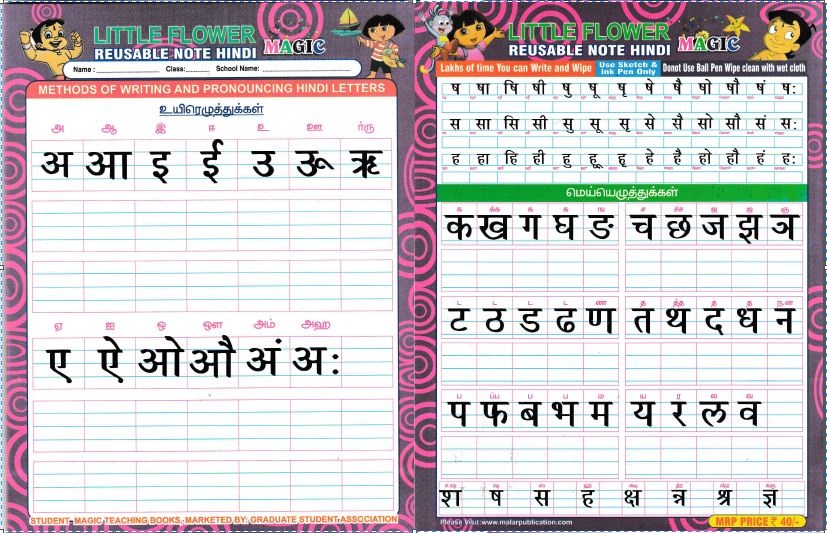 LITTLE FLOWER
REUSABLE NOTE HINDI MAGIC
Name : Class: School Name:
METHODS OF WRITING AND PRONOUNCING HINDI LETTERS
உயிரெழுத்துக்கள்
அ ஆ இ ஈ உ ஊ
अ आ इ ई उ ऊ ऋ
ஏ ஐ ஒ ஔ அம் அஹ
ए ऐ ओ औ अं अः
STUDENT MAGIC TEACHING BOOKS, MARKETED BY: GRADUATE STUDENT ASSOCIATION
LITTLE FLOWER
REUSABLE NOTE HINDI MAGIC
Lakhs of time You can Write and Wipe Use Sketch & Ink Pen Only Donot Use Ball Pen Wipe clean with wet cloth
ष षा षि षी षु षू षृ षे षै षो षौ षं षः
स सा सि सी सु सू सृ से सै सो सौ सं सः
ह हा हि ही हु हू हृ हे है हो हौ हं हः
மெய்யெழுத்துக்கள்
क ख ग घ ङ च छ ज झ ञ
ट ठ ड ढ ण त थ द ध न
प फ ब भ म य र ल व
श ष स ह क्ष श्र ज्ञ
Please Visit:www.malarpublication.com MRP PRICE ₹ 40/-